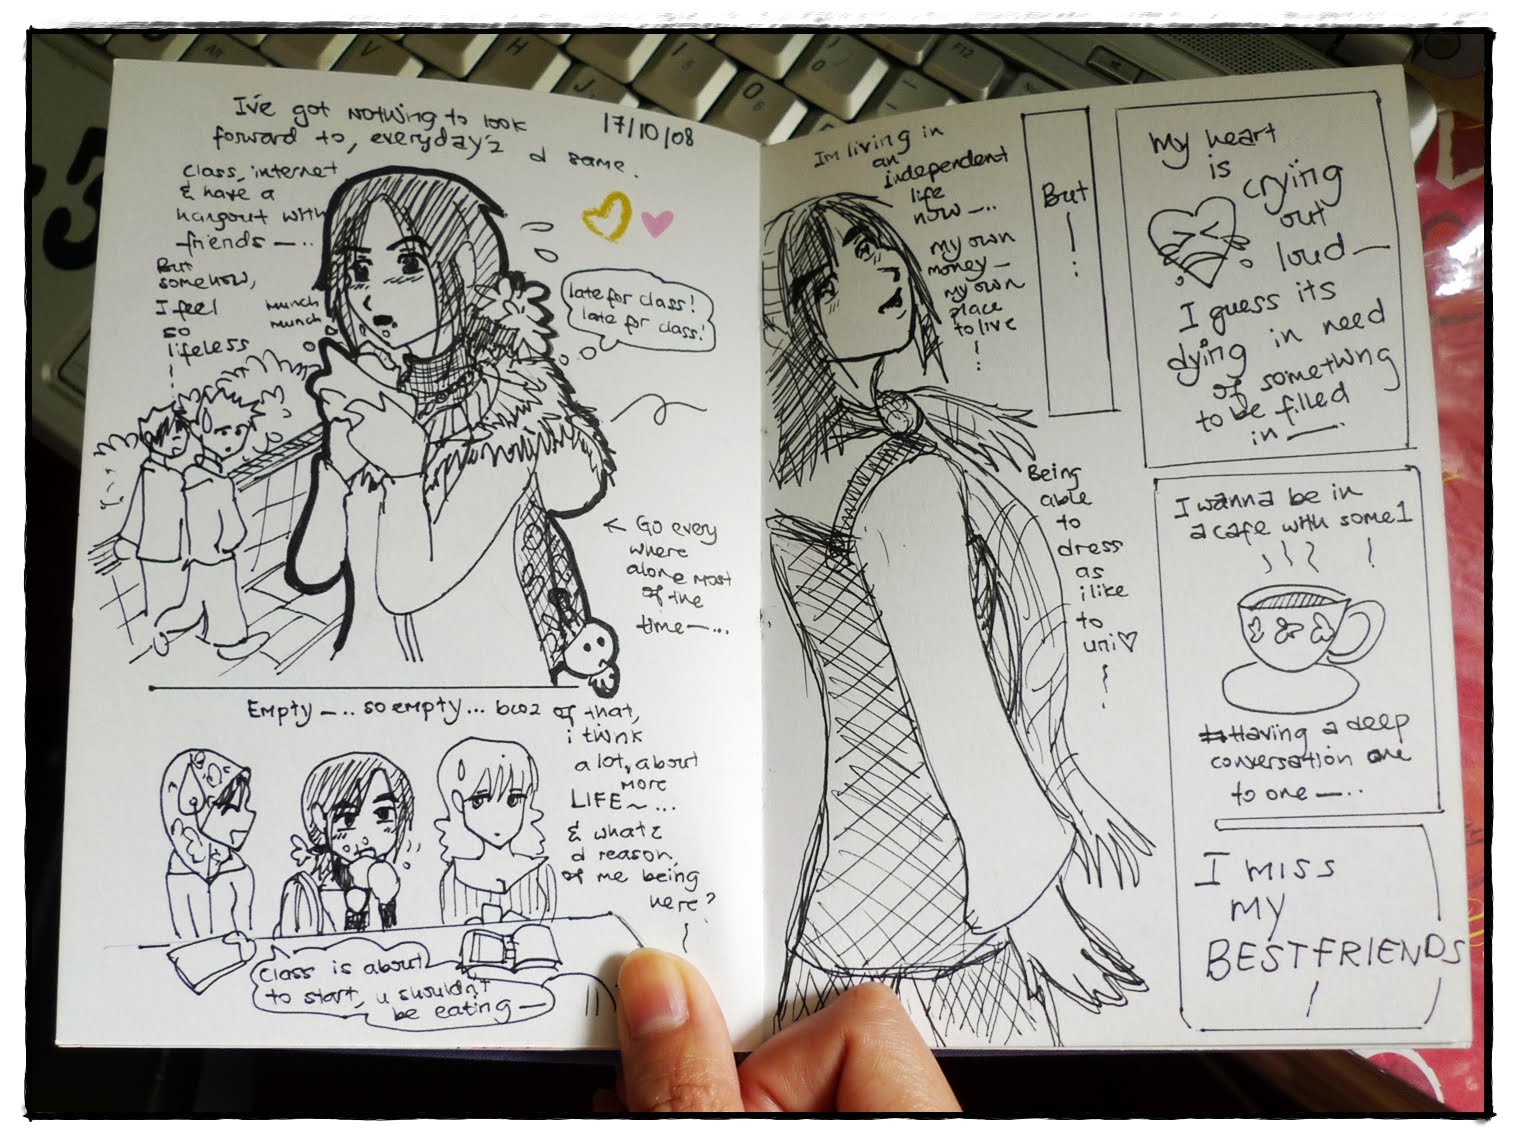 I've got nothing to look
forward to, everyday'z d same.
17/10/08
class, internet
& have a
hangout with
friends —..
But
somehow,
I feel
so
lifeless
munch
munch
late for class!
late for class!
← Go every
where
alone most
of the
time —...
Empty —.. so empty... bcoz of that,
i think
a lot, about
more
LIFE ~...
& whatz
d reason,
of me being
here?
class is about
to start, u shouldn't
be eating —
Im living in
an
independent
life
now —..
my own
money —
my own
place
to live
Being
able
to
dress
as
i like
to
uni♡
But
my heart
is
crying
out
loud —
I guess its
dying in need
of something
to be filled
in —
I wanna be in
a cafe with some1
Having a deep
conversation one
to one —..
I miss
my
BESTFRIENDS
Alt
V
H
J
I
O
F12